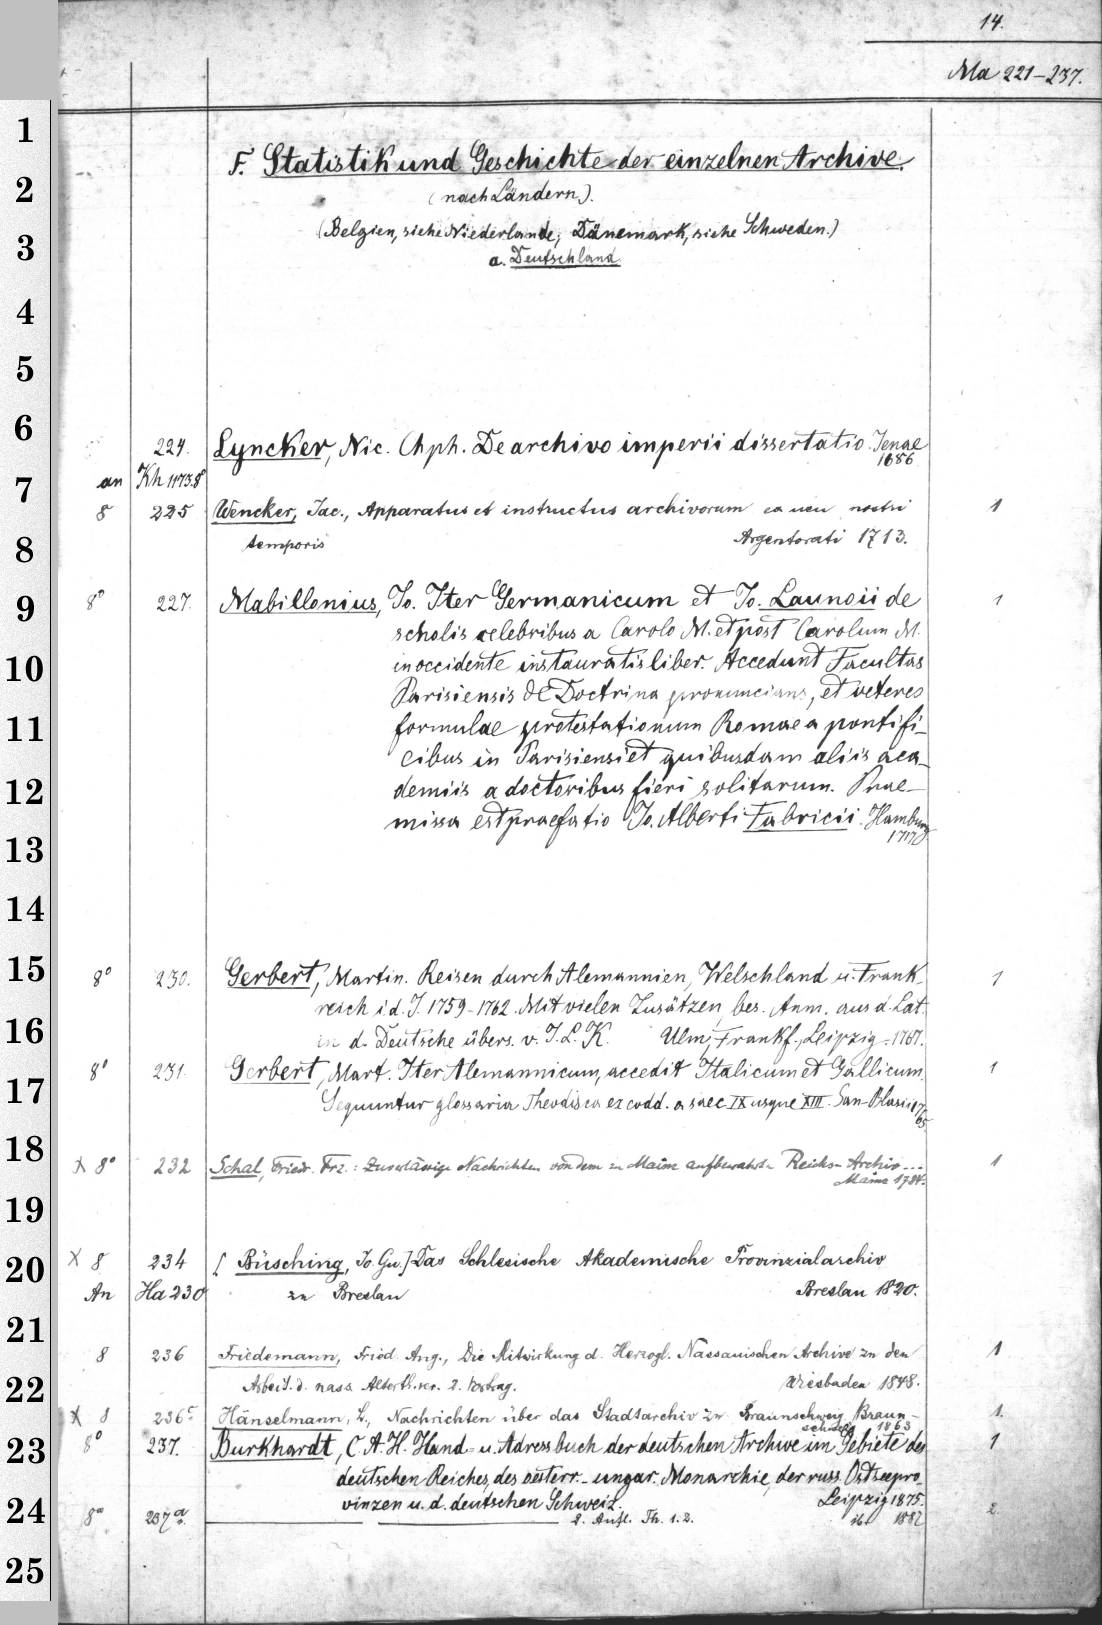 14.
Ma 221-237.
1
F. Statistik und Geschichte der einzelnen Archive.
2
(nach Ländern).
(Belgien, siehe Niederlande; Dänemark, siehe Schweden.)
3
a. Deutschland.
4
5
6
224. Lyncker, Nic. Chph. De archivo imperii dissertatio. Jenae
1686
7
an Kh 1173.8°
8 225 Wencker, Jac., Apparatus et instructus archivorum ex usu nostri 1
8
temporis Argentorati 1713.
9
8° 227. Mabillonius, Jo. Iter Germanicum et Jo. Launoii de 1
scholis celebribus a Carolo M. et post Carolum M.
10
in occidente instauratis liber. Accedunt Facultas
Parisiensis de Doctrina pronuncians, et veteres
11
formulae protestationum Romae a pontifi-
cibus in Parisiensi et quibusdam aliis aca-
12
demiis a doctoribus fieri solitarum. Prae-
missa est praefatio Jo. Alberti Fabricii. Hamburg
1717
13
14
15
8° 230. Gerbert, Martin. Reisen durch Alemannien, Welschland u. Frank- 1
reich i. d. J. 1759-1762. Mit vielen Zusätzen, bes. Anm. aus d. Lat.
16
in d. Deutsche übers. v. J. L. K. Ulm, Frankf., Leipzig. 1767.
17
8° 231. Gerbert, Mart. Iter Alemannicum, accedit Italicum et Gallicum. 1
Sequuntur glossaria Theodisca ex codd. a saec IX usque XIII. San-Blasii 17/65
18
X 8° 232 Schal, Friedr. Frz.: Zuverlässige Nachrichten von dem zu Mainz aufbewahrten Reichs-Archiv... 1
Mainz 1784.
19
20
X 8 234 [Büsching, Jo. Gu.] Das Schlesische Akademische Provinzialarchiv
An Ha 230 zu Breslau Breslau 1820.
21
8 236 Friedemann, Fried. Aug., Die Mitwirkung d. Herzogl. Nassauischen Archive zu den 1
22
Arbeit. d. nass. Alterth.ver. 2. Vortrag. Wiesbaden 1848.
X 8 236c Hänselmann, L., Nachrichten über das Stadtarchiv zu Braunschweig Braun- 1.
schweig 1863
23
8° 237. Burkhardt, C. A. H. Hand- u. Adressbuch der deutschen Archive im Gebiete des 1
deutschen Reiches, des oesterr.-ungar. Monarchie, der russ. Ostseepro-
24
vinzen u. d. deutschen Schweiz. Leipzig 1875.
8° 237a. 2. Aufl. Th. 1. 2. ib. 1887 2.
25